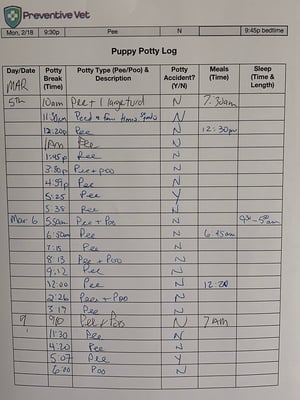 Preventive Vet
Mon, 2/18 9:30p Pee N 9:45p bedtime
Puppy Potty Log
Day/Date Potty Break (Time) Potty Type (Pee/Poo) & Description Potty Accident? (Y/N) Meals (Time) Sleep (Time & Length)
MAR
5th 10am Pee + 1 large turd N 7:30am
N
12:20p Pee N 12:30pm
Pee N
1:45p Pee N
3:30p Pee + poo N
4:59p Pee N
5:25 Pee Y
5:35 Pee N
Mar. 6 5:50am Pee + Poo N
6:50am Pee N 6:45am
7:15 Pee N
8:13 Pee + Poo N
9:12 Pee N
12:00 Pee N 12:20
2:26 Pee + Poo N
3:17 Pee N
9 Pee + Poo N 7 AM
11:30 Pee N
4:20 Pee N
5:07 Pee Y
6:00 Poo N